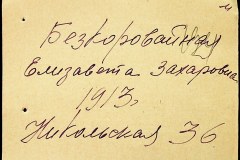 Безкоровайная
Елизавета Захаровна
1913г
Никольская 36